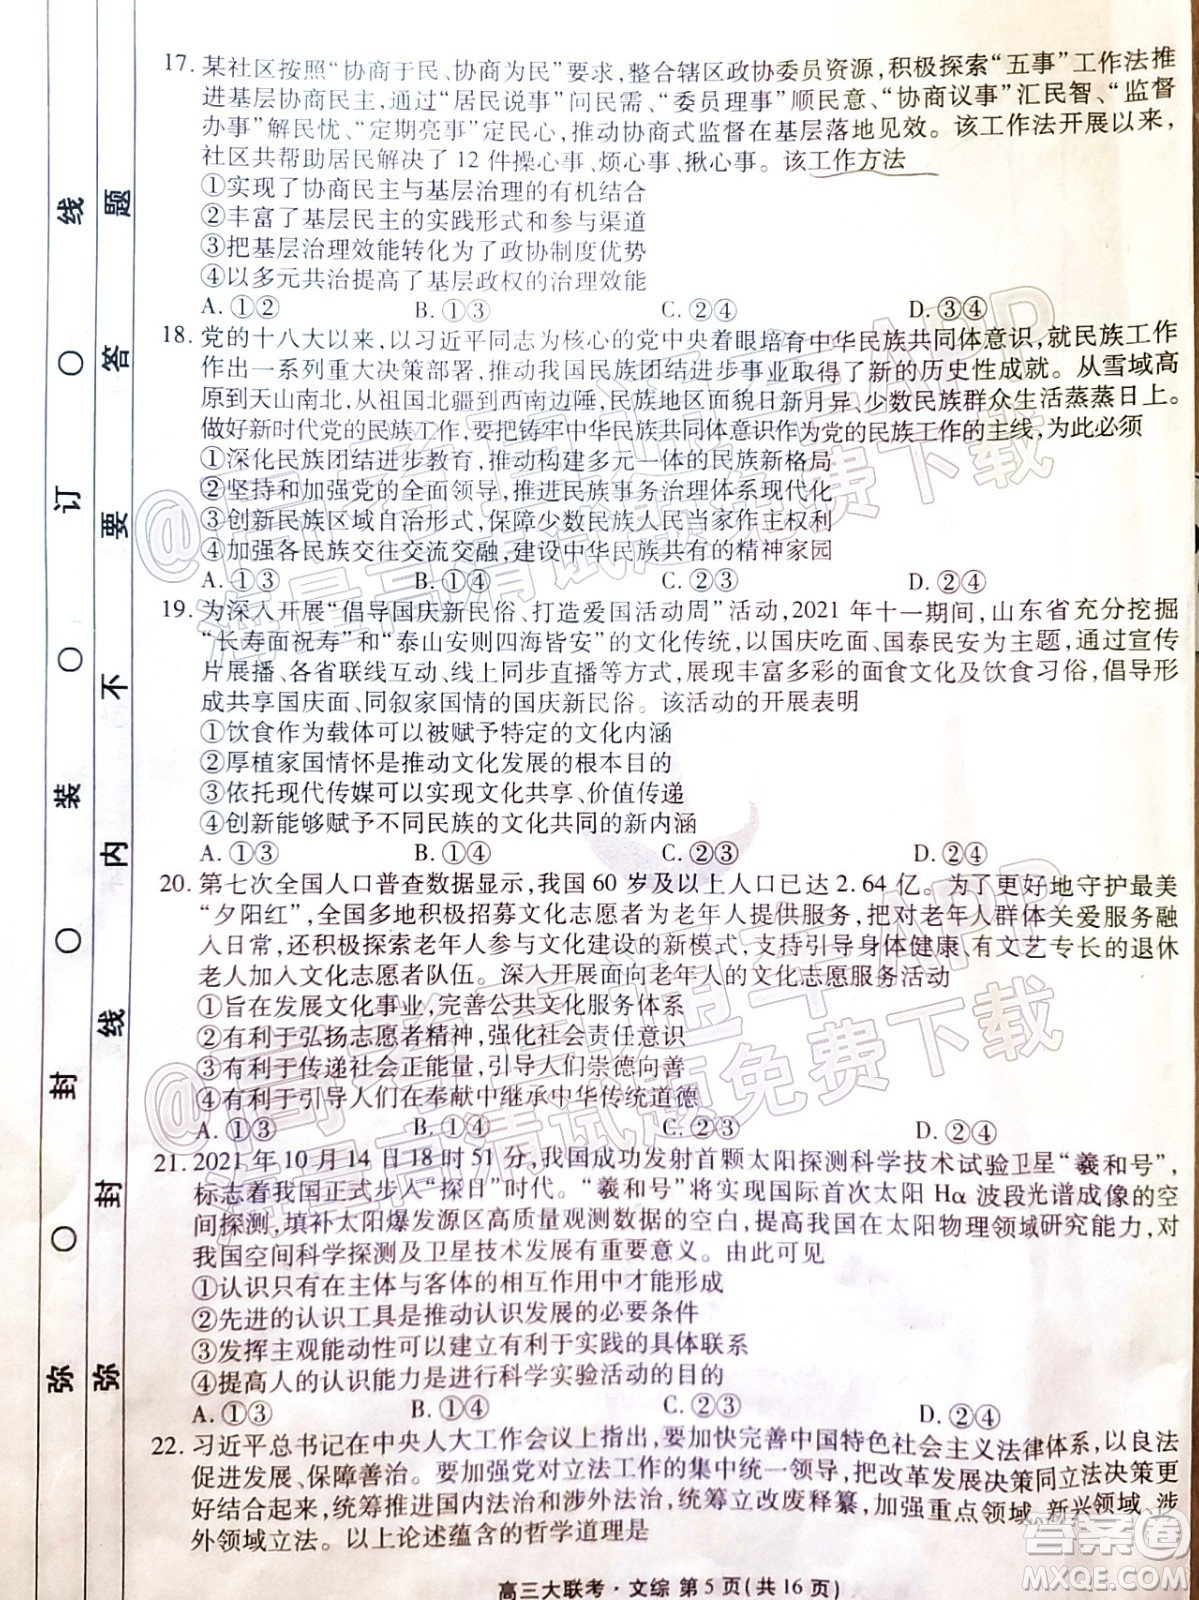 17. 某社区按照“协商于民、协商为民”要求，整合辖区政协委员资源，积极探索“五事”工作法推
进基层协商民主，通过“居民说事”问民需、“委员理事”顺民意、“协商议事”汇民智、“监督
办事”解民忧、“定期亮事”定民心，推动协商式监督在基层落地见效。该工作法开展以来，
社区共帮助居民解决了 12 件操心事、烦心事、揪心事。该工作方法
①实现了协商民主与基层治理的有机结合
②丰富了基层民主的实践形式和参与渠道
③把基层治理效能转化为了政协制度优势
④以多元共治提高了基层政权的治理效能
A. ①② B. ①③ C. ②④ D. ③④
18. 党的十八大以来，以习近平同志为核心的党中央着眼培育中华民族共同体意识，就民族工作
作出一系列重大决策部署，推动我国民族团结进步事业取得了新的历史性成就。从雪域高
原到天山南北，从祖国北疆到西南边陲，民族地区面貌日新月异、少数民族群众生活蒸蒸日上。
做好新时代党的民族工作，要把铸牢中华民族共同体意识作为党的民族工作的主线，为此必须
①深化民族团结进步教育，推动构建多元一体的民族新格局
②坚持和加强党的全面领导，推进民族事务治理体系现代化
③创新民族区域自治形式，保障少数民族人民当家作主权利
④加强各民族交往交流交融，建设中华民族共有的精神家园
A. ①③ B. ①④ C. ②③ D. ②④
19. 为深入开展“倡导国庆新民俗、打造爱国活动周”活动，2021 年十一期间，山东省充分挖掘
“长寿面祝寿”和“泰山安则四海皆安”的文化传统，以国庆吃面、国泰民安为主题，通过宣传
片展播、各省联线互动、线上同步直播等形式，展现丰富多彩的面食文化及饮食习俗，形
成共享国庆面、同叙家国情的国庆新民俗。该活动的开展表明
①饮食作为载体可以被赋予特定的文化内涵
②厚植家国情怀是推动文化发展的根本目的
③依托现代传媒可以实现文化共享、价值传递
④创新能够赋予不同民族的文化共同的新内涵
A. ①③ B. ①④ C. ②③ D. ②④
20. 第七次全国人口普查数据显示，我国 60 岁及以上人口已达 2.64 亿。为了更好地守护最美
“夕阳红”，全国多地积极招募文化志愿者为老年人提供服务，把对老年人群体关爱服务融
入日常，还积极探索老年人参与文化建设的新模式，支持引导身体健康、有文艺专长的退休
老人加入文化志愿者队伍。深入开展面向老年人的文化志愿服务活动
①旨在发展文化事业，完善公共文化服务体系
②有利于弘扬志愿者精神，强化社会责任意识
③有利于传递社会正能量，引导人们崇德向善
④有利于引导人们在奉献中继承中华传统道德
A. ①③ B. ①④ C. ②③ D. ②④
21. 2021 年 10 月 14 日 18 时 51 分，我国成功发射首颗太阳探测科学技术试验卫星“羲和号”，
标志着我国正式步入“探日”时代。“羲和号”将实现国际首次太阳 Hα 波段光谱成像的空
间探测，填补太阳爆发源区高质量观测数据的空白，提高我国在太阳物理领域研究能力，对
我国空间科学探测及卫星技术发展具有重要意义。由此可见
①认识只有在主体与客体的相互作用中才能形成
②先进的认识工具是推动认识发展的必要条件
③发挥主观能动性可以建立有利于实践的具体联系
④提高人的认识能力是进行科学实验活动的目的
A. ①③ B. ①④ C. ②③ D. ②④
22. 习近平总书记在中央人大工作会议上指出，要加快完善中国特色社会主义法律体系，以良法
促进发展、保障善治。要加强党对立法工作的集中统一领导，把改革发展决策同立法决策更
好结合起来，统筹推进国内法治和涉外法治，统筹立改废释纂，加强重点领域、新兴领域、涉
外领域立法。以上论述蕴含的哲学道理是
高三大联考·文综 第 5 页（共 16 页）
弥 ○ 封 ○ 装 ○ 订 ○ 线
弥 封 线 内 不 要 答 题
@高考直通车APP
海量高清试题免费下载
@高考直通车APP
海量高清试题免费下载
答案圈
MXQE.COM